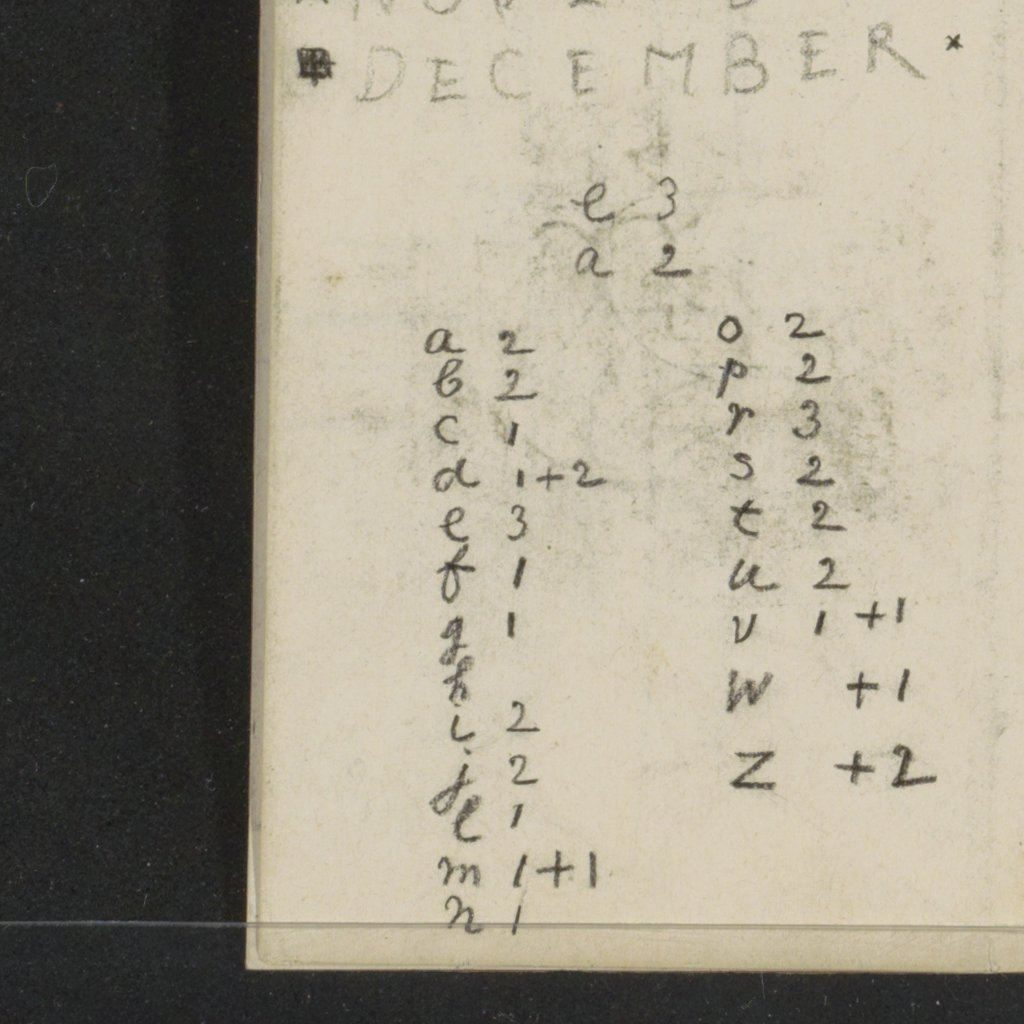 DECEMBER ×
e 3
a 2
a 2
b 2
c 1
d 1+2
e 3
f 1
g 1
h
i 2
j 2
l 1
m 1+1
n 1
o 2
p 2
r 3
s 2
t 2
u 2
v 1+1
w +1
z +2